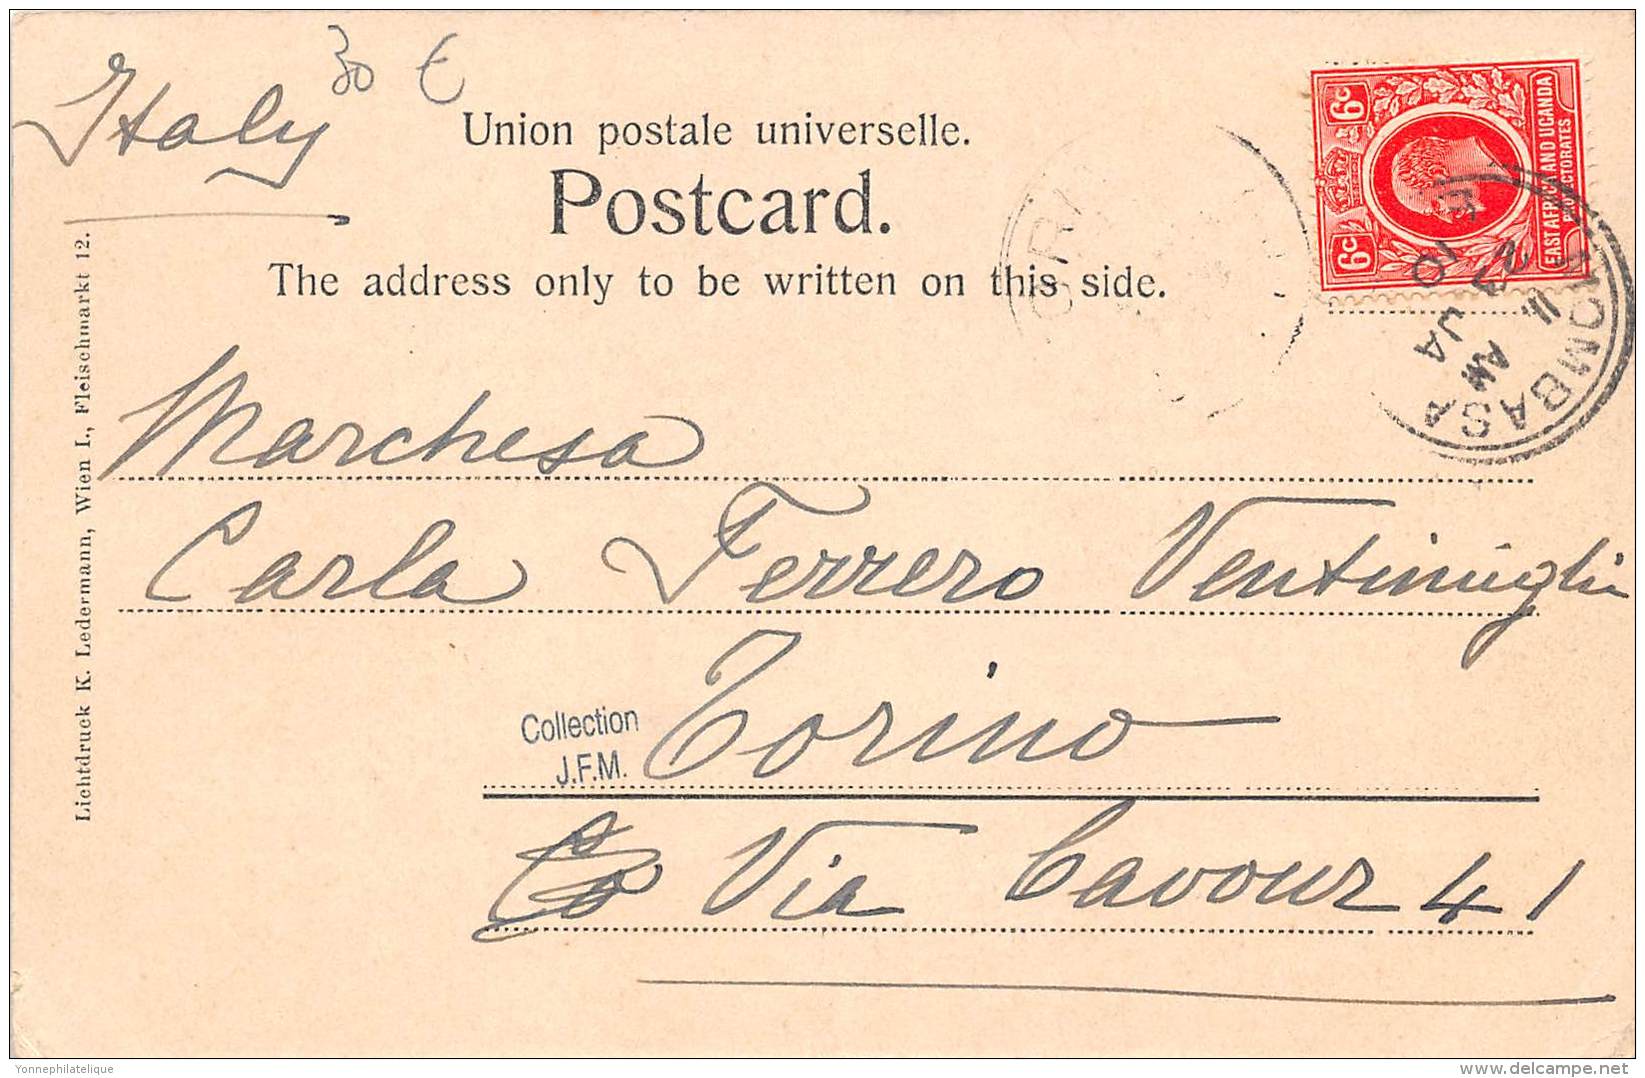 Italy
30 €
Union postale universelle.
Postcard.
The address only to be written on this side.
6c
6c
EAST AFRICA AND UGANDA
PROTECTORATES
MOMBASA
11 AM
JA
10
Marchesa
Carla Ferrero Ventimiglia
Torino
Collection
J.F.M.
Via Cavour 41
Lichtdruck K. Ledermann, Wien I., Fleischmarkt 12.
Yonnephilatelique
delcampe.net